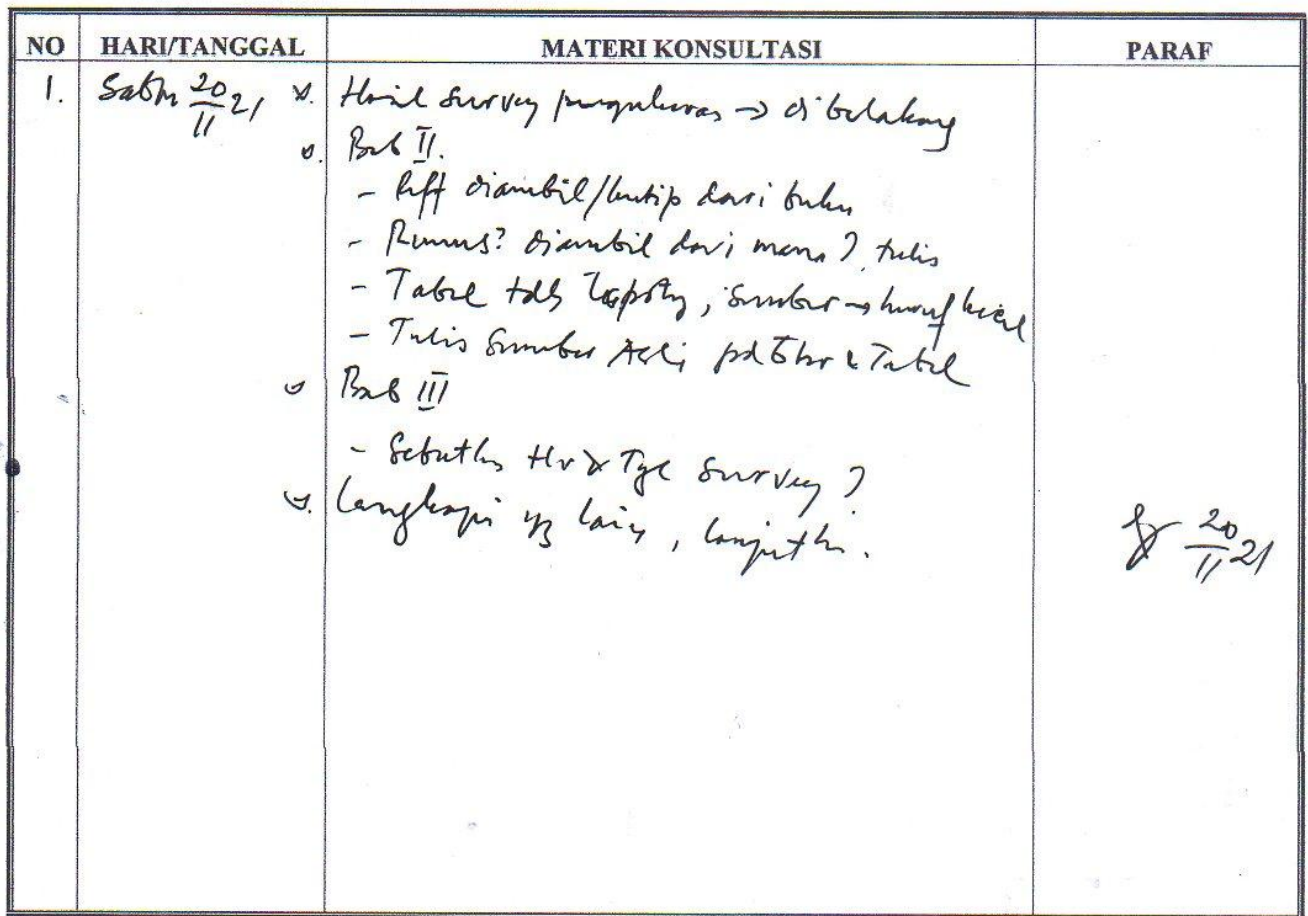 NO HARI/TANGGAL MATERI KONSULTASI PARAF
1. Sabtu 20/11 21 Hasil Survey pengukuran → dibelakang
Bab II.
- diambil/kutip dari buku
- Rumus? diambil dari mana?, tulis
- Tabel tdk, Sumber → huruf kecil
- Tulis Sumber Asli pd Gbr & Tabel
Bab III
- Sebutkn Hr & Tgl Survey?
Lengkapi yg lain, lanjutkn.
20/11 21